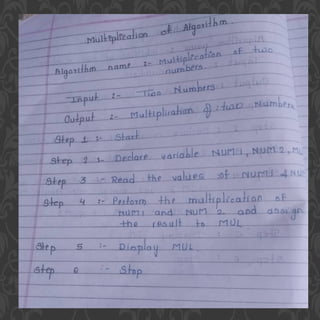 Multiplication of Algorithm.
Algorithm name :- Multiplication of two
numbers.
Input :- Two Numbers
Output :- Multiplication of two Numbers
Step 1 :- Start
Step 2 :- Declare variable NUM1, NUM2,
Step 3 :- Read the values of NUM1 &
Step 4 :- Perform the multiplication of
NUM1 and NUM 2 and assign
the result to MUL
Step 5 :- Display MUL
Step 6 :- Stop